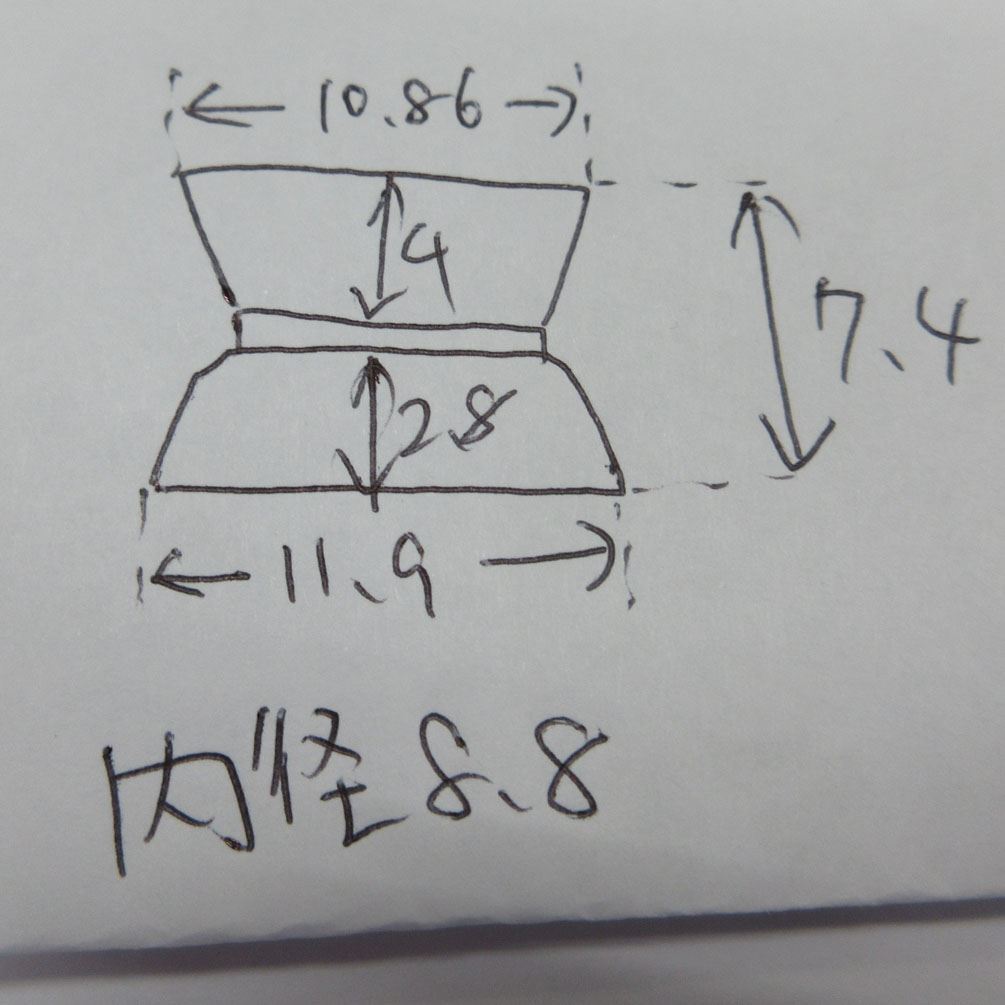 10.86
4
7.4
2.8
11.9
内径8.8